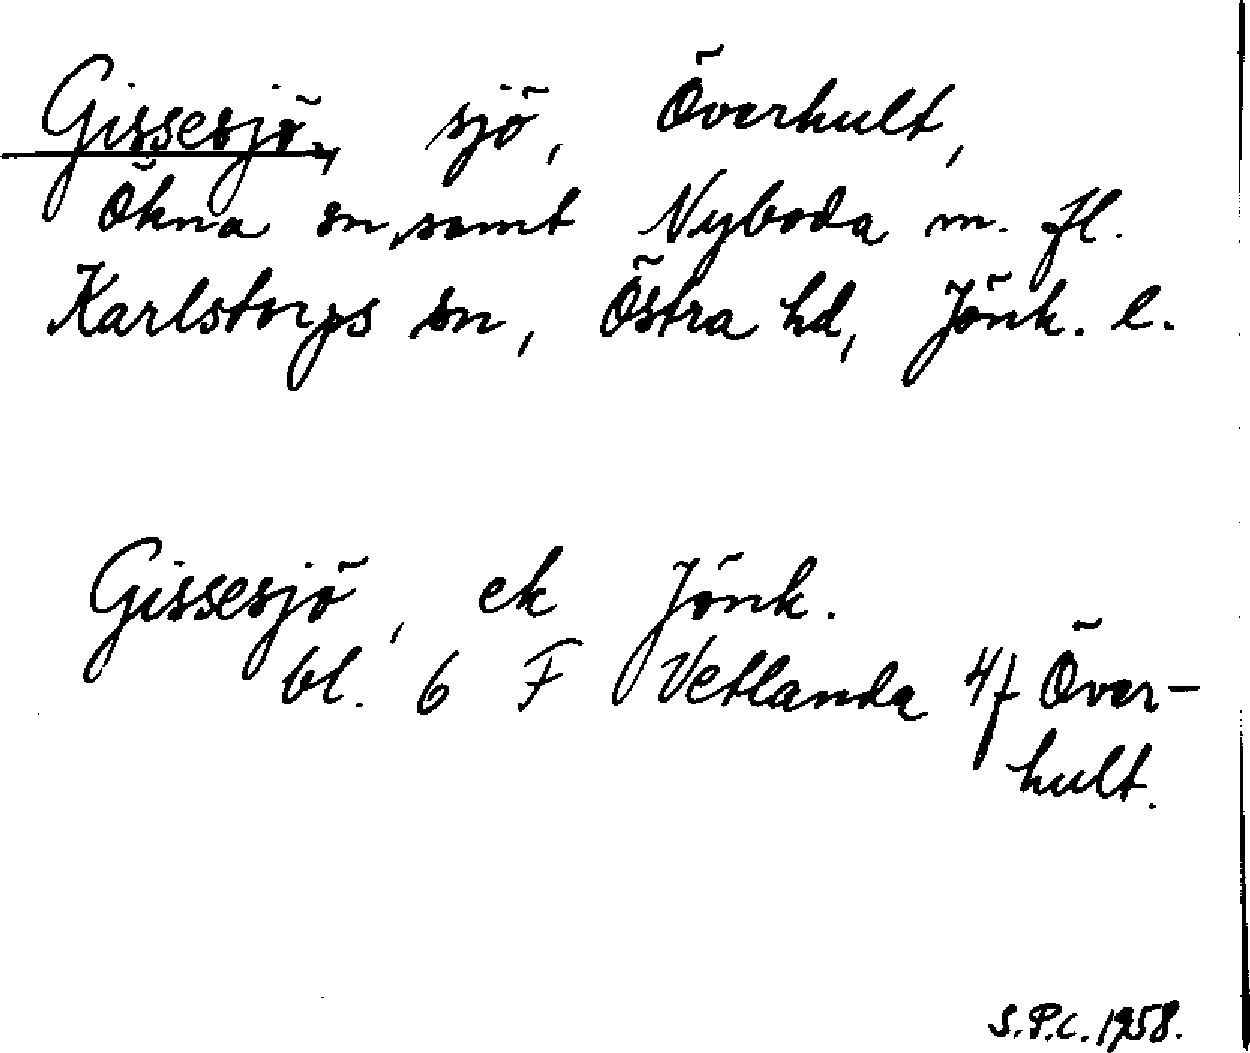 Gissesjö, sjö, Överhult,
Ökna sn, samt Nyboda m. fl.
Karlstorps sn, Östra hd, Jönk. l.
Gissesjö, ek Jönk.
bl. 6 F Vetlanda 4f Över-
hult.
S.P.C. 1958.